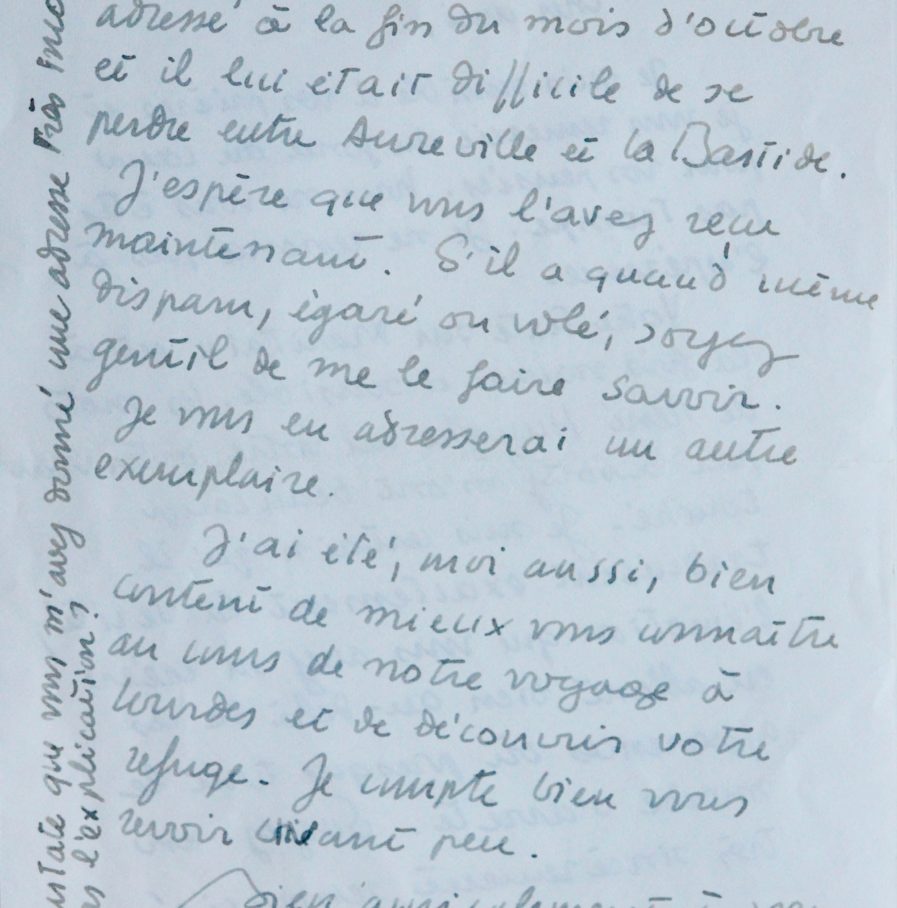 adressé à la fin du mois d'octobre
et il lui était difficile de se
perdre entre Aureville et la Bastide.
J'espère que vous l'avez reçu
maintenant. S'il a quand même
disparu, égaré ou volé, soyez
gentil de me le faire savoir.
Je vous en adresserai un autre
exemplaire.
J'ai été, moi aussi, bien
content de mieux vous connaître
au cours de notre voyage à
Lourdes et de découvrir votre
refuge. Je compte bien vous
revoir avant peu.
Bien amicalement à
que vous m'avez donné une adresse très
l'explication?